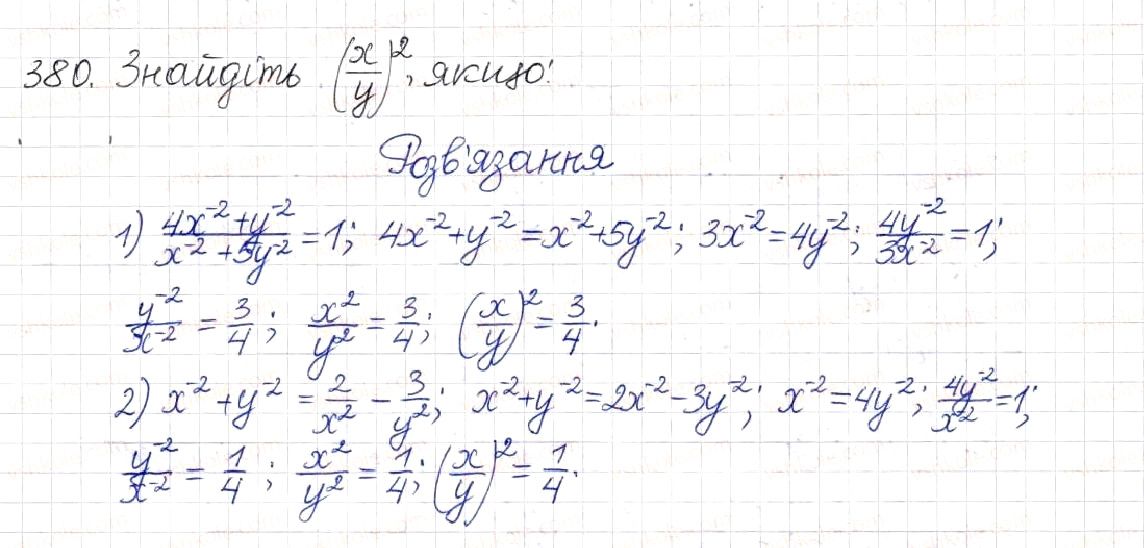 380. Знайдіть (x/y)², якщо:
Розв'язання
1) (4x⁻² + y⁻²)/(x⁻² + 5y⁻²) = 1; 4x⁻² + y⁻² = x⁻² + 5y⁻²; 3x⁻² = 4y⁻²; 4y⁻²/3x⁻² = 1;
y⁻²/x⁻² = 3/4; x²/y² = 3/4; (x/y)² = 3/4.
2) x⁻² + y⁻² = 2/x² − 3/y²; x⁻² + y⁻² = 2x⁻² − 3y⁻²; x⁻² = 4y⁻²; 4y⁻²/x⁻² = 1;
y⁻²/x⁻² = 1/4; x²/y² = 1/4; (x/y)² = 1/4.